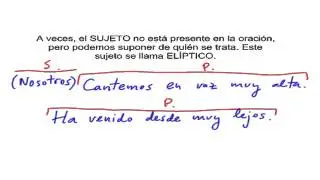 A veces, el SUJETO no está presente en la oración,
pero podemos suponer de quién se trata. Este
sujeto se llama ELÍPTICO.
S. P.
(Nosotros) Cantemos en voz muy alta.
P.
Ha venido desde muy lejos.